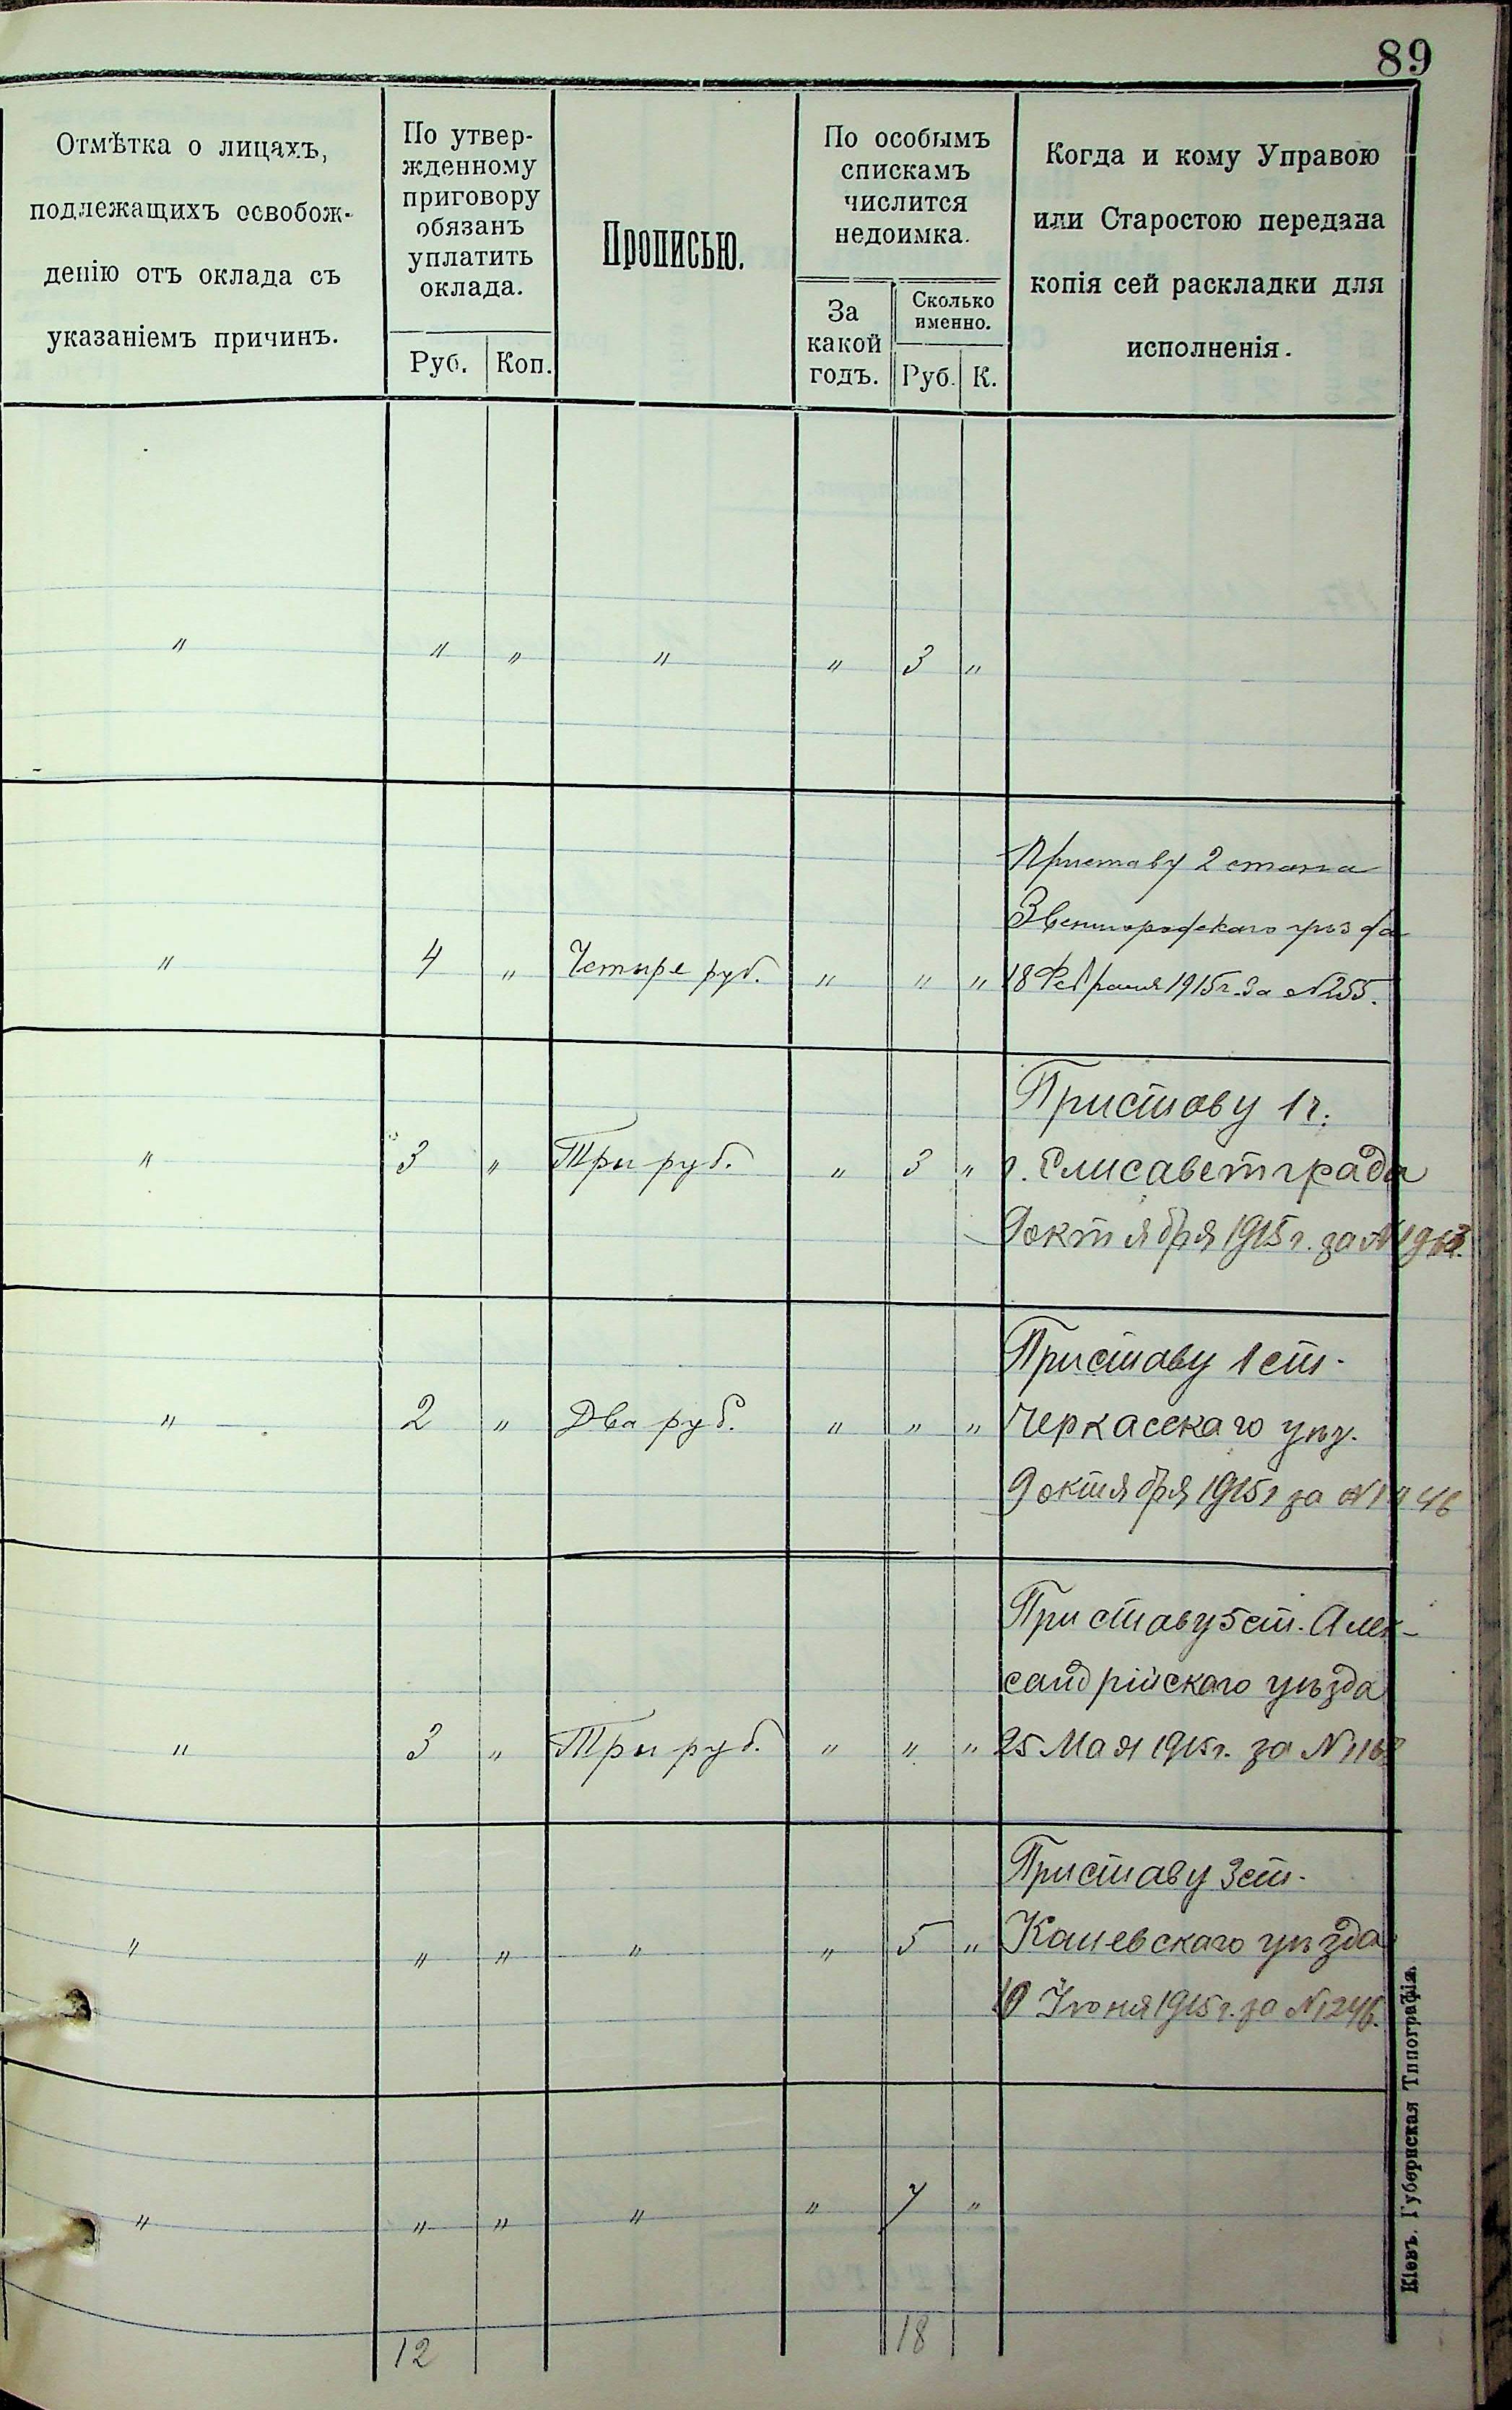 89
Отмѣтка о лицахъ,
подлежащихъ освобож-
денію отъ оклада съ
указаніемъ причинъ.
По утвер-
жденному
приговору
обязанъ
уплатить
оклада.
Руб. Коп.
Прописью.
По особымъ
спискамъ
числится
недоимка.
За
какой
годъ.
Сколько
именно.
Руб. К.
Когда и кому Управою
или Старостою передана
копія сей раскладки для
исполненія.
" " " " " 3 "
Приставу 2 стана
Звенигородскаго уѣзда
" 4 " Четыре руб. " " " 18 Февраля 1915 г. за № 255.
Приставу 1 ч.
" 3 " Три руб. " 3 " г. Елисаветграда
9 октября 1915 г. за №
Приставу 1 ст.
" 2 " Два руб. " " " Черкасскаго уѣз.
9 октября 1915 г за №
Приставу 5 ст. Алек-
сандрійскаго уѣзда
" 3 " Три руб. " " " 25 Мая 1915 г. за №
Приставу 3 ст.
" " " " " 5 " Каневскаго уѣзда
10 Іюня 1915 г. за № 1246.
" " " " " 7 "
12 18
Кіевъ. Губернская Типографія.